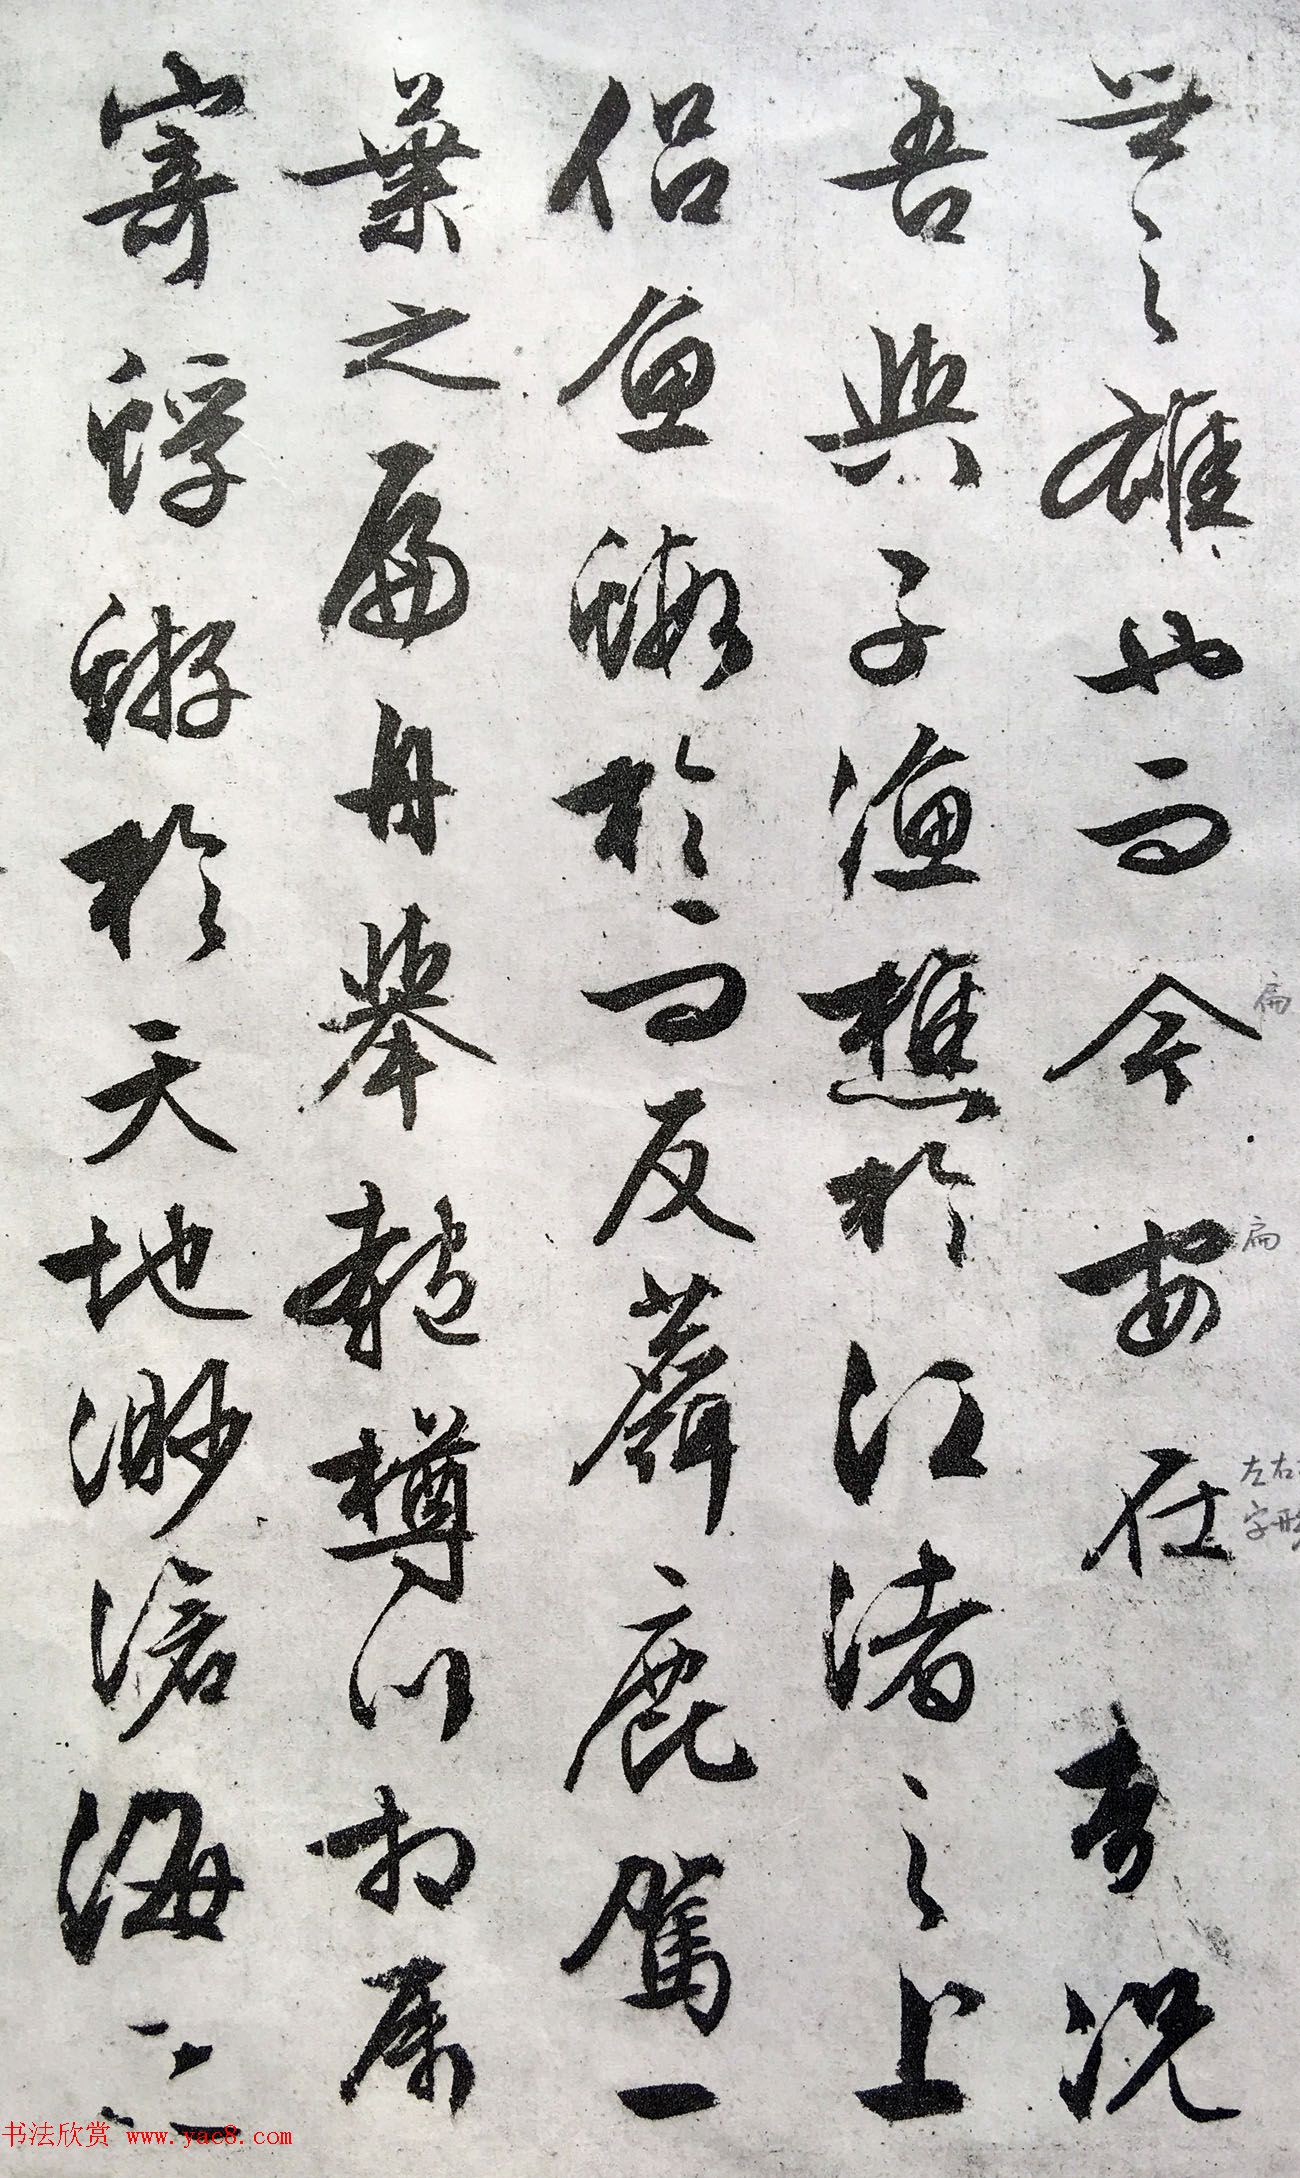 世之雄也而今安在哉況
吾與子漁樵於江渚之上
侶魚蝦於而友麋鹿駕一
葉之扁舟舉匏樽以相属
寄蜉蝣於天地渺滄海之一
扁
扁
左右
字形
书法欣赏 www.yac8.com